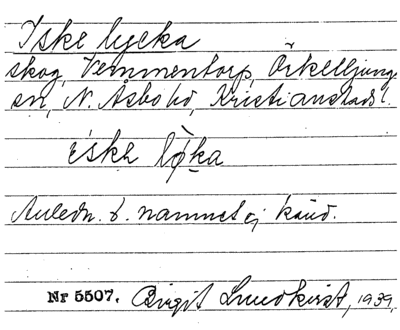 Iske lycka
skog, Vemmentorp, Örkelljunga
sn, N. Åsbo hd, Kristianstads l.
ìske lỵ̀ka
Anledn. t. namnet ej känd.
Nr 5507. Birgit Lundkvist, 1939.